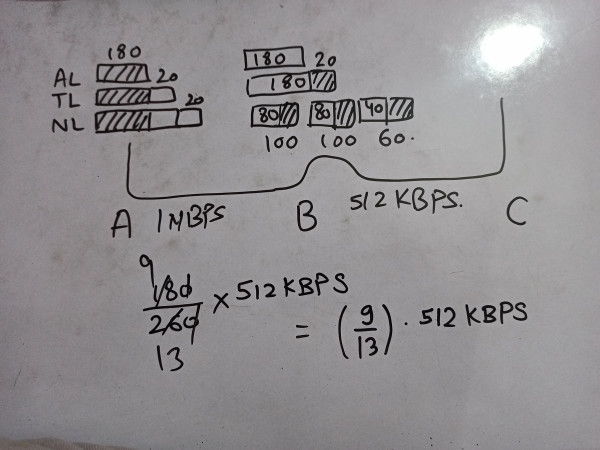 180
180 20
AL 20
180
TL 20
NL 80 80 40
100 100 60.
A 1MBPS B 512 KBPS. C
9
180
260 × 512 KBPS = (9/13) . 512 KBPS
13